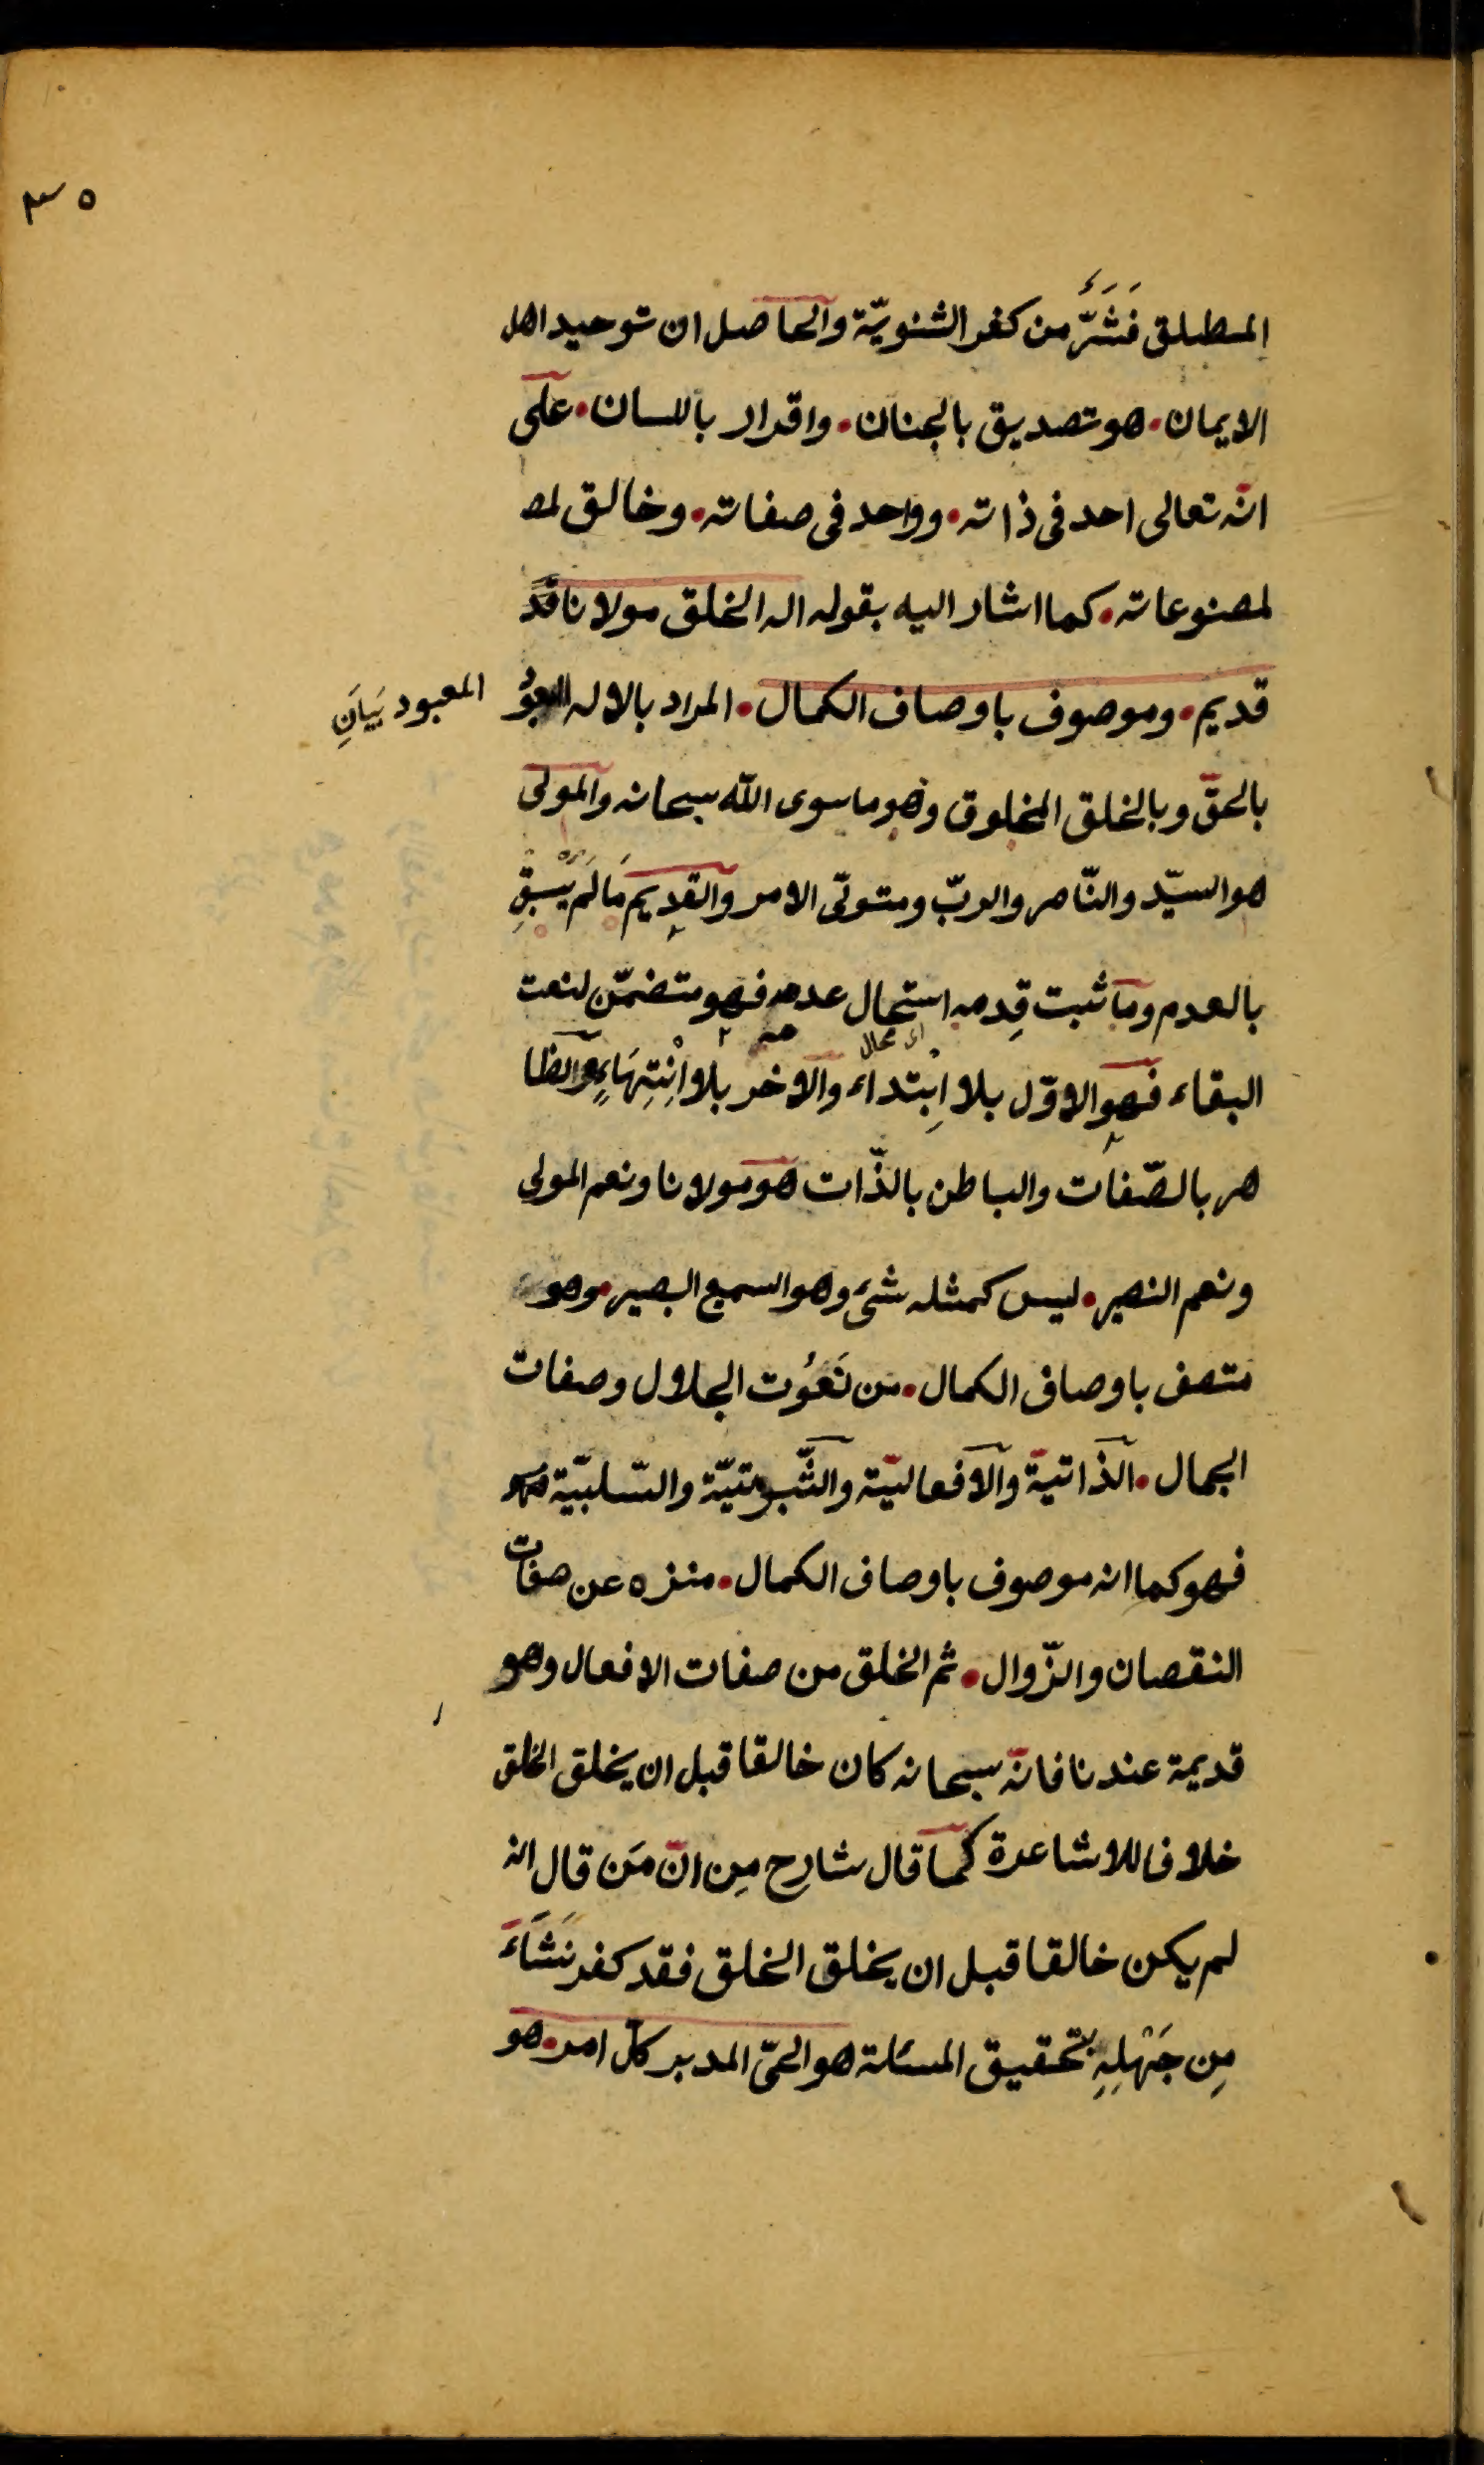 ٣٥
المطلق فَشَرٌّ من كفر الشنويّة والحاصل ان توحيد اهل
الايمان • هو تصديق بالجنان • واقرار باللسان • على
انّه تعالى احد فى ذاته • وواحد فى صفاته • وخالق لمصـ
لمصنوعاته • كما اشار اليه بقوله اله الخلق مولانا قد
قديم • وموصوف باوصاف الكمال • المراد بالاله
المعبود بَيَانِ
بالحقّ وبالخلق المخلوق وهو ما سوى الله سبحانه والمولى
هو السيّد والنّاصر والربّ ومتولّى الامر والقديم مَا لَمْ يُسْبَقِ
بالعدم وما ثبت قِدمه استحال عدمه فهو متضمّن لنعت
اى محال
البقاء فهو الاوّل بلا اِبتداء والآخر بلا اِنْتِهَاءٍ والظا
هر بالصّفات والباطن بالذّات هو مولانا ونعم المولى
ونعم النصير • ليس كمثله شئ وهو السميع البصير • وهو
متصف باوصاف الكمال • من نَعُوت الجلال وصفات
الجمال • الذّاتيّة والافعاليّة والثّبوتيّة والسّلبيّة
فهو كما انه موصوف باوصاف الكمال • منزه عن صفات
النقصان والزّوال • ثم الخلق من صفات الافعال وهو
قديمة عندنا فانّه سبحانه كان خالقا قبل ان يخلق الخلق
خلافا للاشاعرة كما قال شارح مِن انّ مَن قال انه
لم يكن خالقا قبل ان يخلق الخلق فقد كفر نَشَاءَ
مِن جَهْلِهِ بتحقيق المسئلة هو الحىّ المدبر كلّ امر • هو